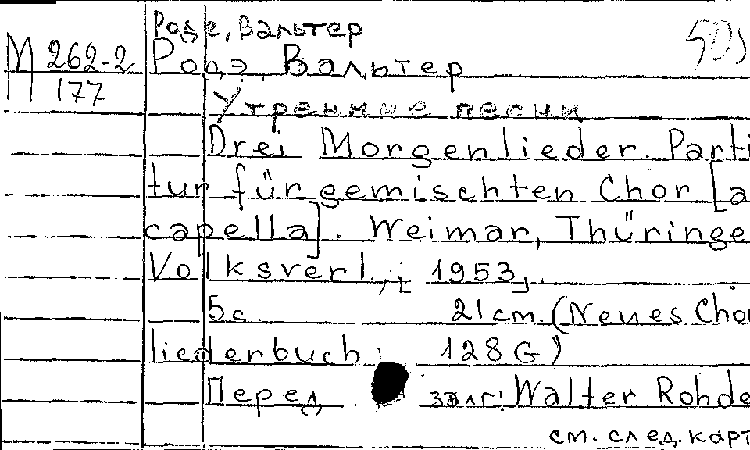 Роде, Вальтер
М 262-2 Родэ, Вальтер
177
Утренние песни
Drei Morgenlieder. Parti
tur für gemischten Chor [a
capella]. Weimar, Thüringe
Volksverl., [1953].
5с 21 cm. (Neues Cho
liederbuch; 128 G)
Перед загл: Walter Rohde
см. след. карт